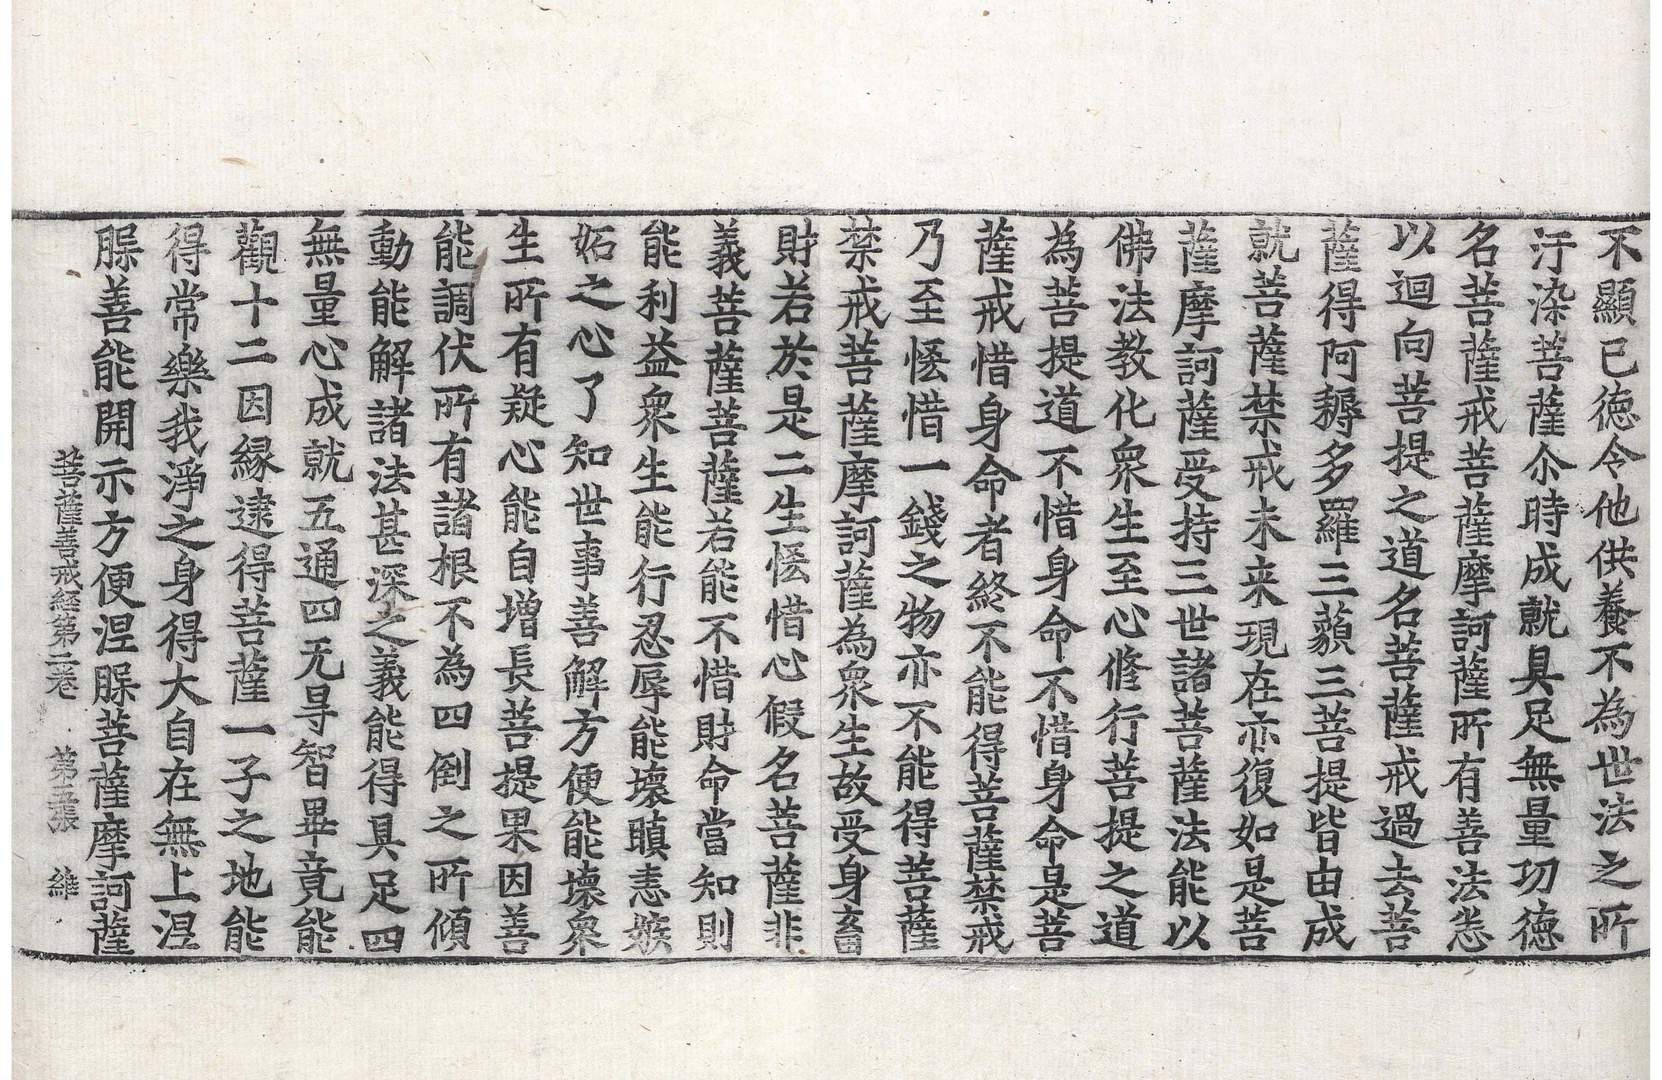 不顯已德令他供養不為世法之所
汙染菩薩尒時成就具足無量功德
名菩薩戒菩薩摩訶薩所有善法悉
以迴向菩提之道名菩薩戒過去菩
薩得阿耨多羅三藐三菩提皆由成
就菩薩禁戒未来現在亦復如是菩
薩摩訶薩受持三世諸菩薩法能以
佛法教化衆生至心脩行菩提之道
為菩提道不惜身命不惜身命是菩
薩戒惜身命者終不能得菩薩禁戒
乃至悋惜一錢之物亦不能得菩薩
禁戒菩薩摩訶薩為衆生故受身畜
財若於是二生悋惜心假名菩薩非
義菩薩菩薩若能不惜財命當知則
能利益衆生能行忍辱能壞瞋恚嫉
妬之心了知世事善解方便能壞衆
生所有疑心能自增長菩提果因善
能調伏所有諸根不為四倒之所傾
動能解諸法甚深之義能得具足四
無量心成就五通四无㝵智畢竟能
觀十二因縁逮得菩薩一子之地能
得常樂我淨之身得大自在無上涅
脲善能開示方便涅脲菩薩摩訶薩
菩薩善戒経第二卷 第五張 維